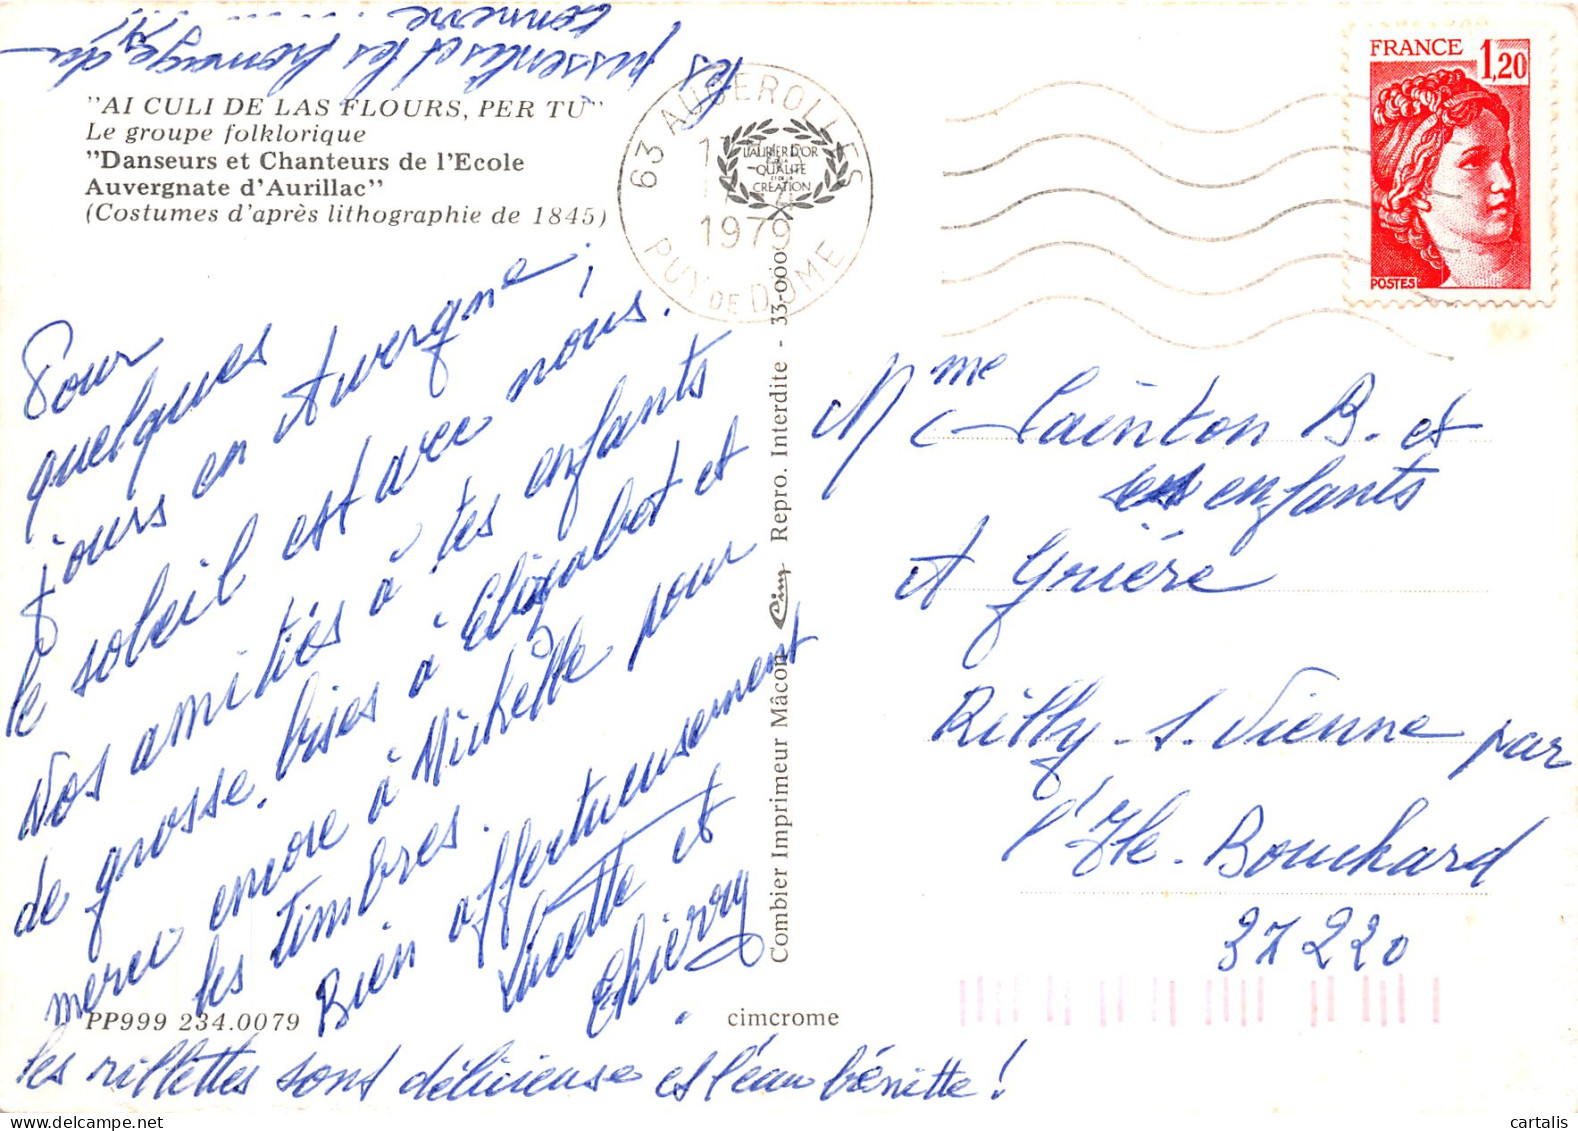 "AI CULI DE LAS FLOURS, PER TU"
Le groupe folklorique
"Danseurs et Chanteurs de l'Ecole
Auvergnate d'Aurillac"
(Costumes d'après lithographie de 1845)
Pour
quelques
jours en Auvergne,
le soleil est avec nous.
Vos amitiés à tes enfants
de grosse bises à Elizabet et
merci encore à Michelle pour
les timbres.
Bien affectueusement
Lucette et
Thierry
les rillettes sont délicieuse et l'eau bénitte!
les pissenlis et les fromage du
tonnerre
PP999 234.0079
cimcrome
Combier Imprimeur Mâcon Cim Repro. Interdite - 33-000
63 AUGEROLLES
1979
PUY DE DOME
LAURIER D'OR
DE LA
QUALITE
ET DE LA
CREATION
FRANCE 1,20
POSTES
Mme Sainton B. et
ses enfants
A Grière
Rilly s. Vienne par
l'Ile Bouchard
37220
cartalis.com